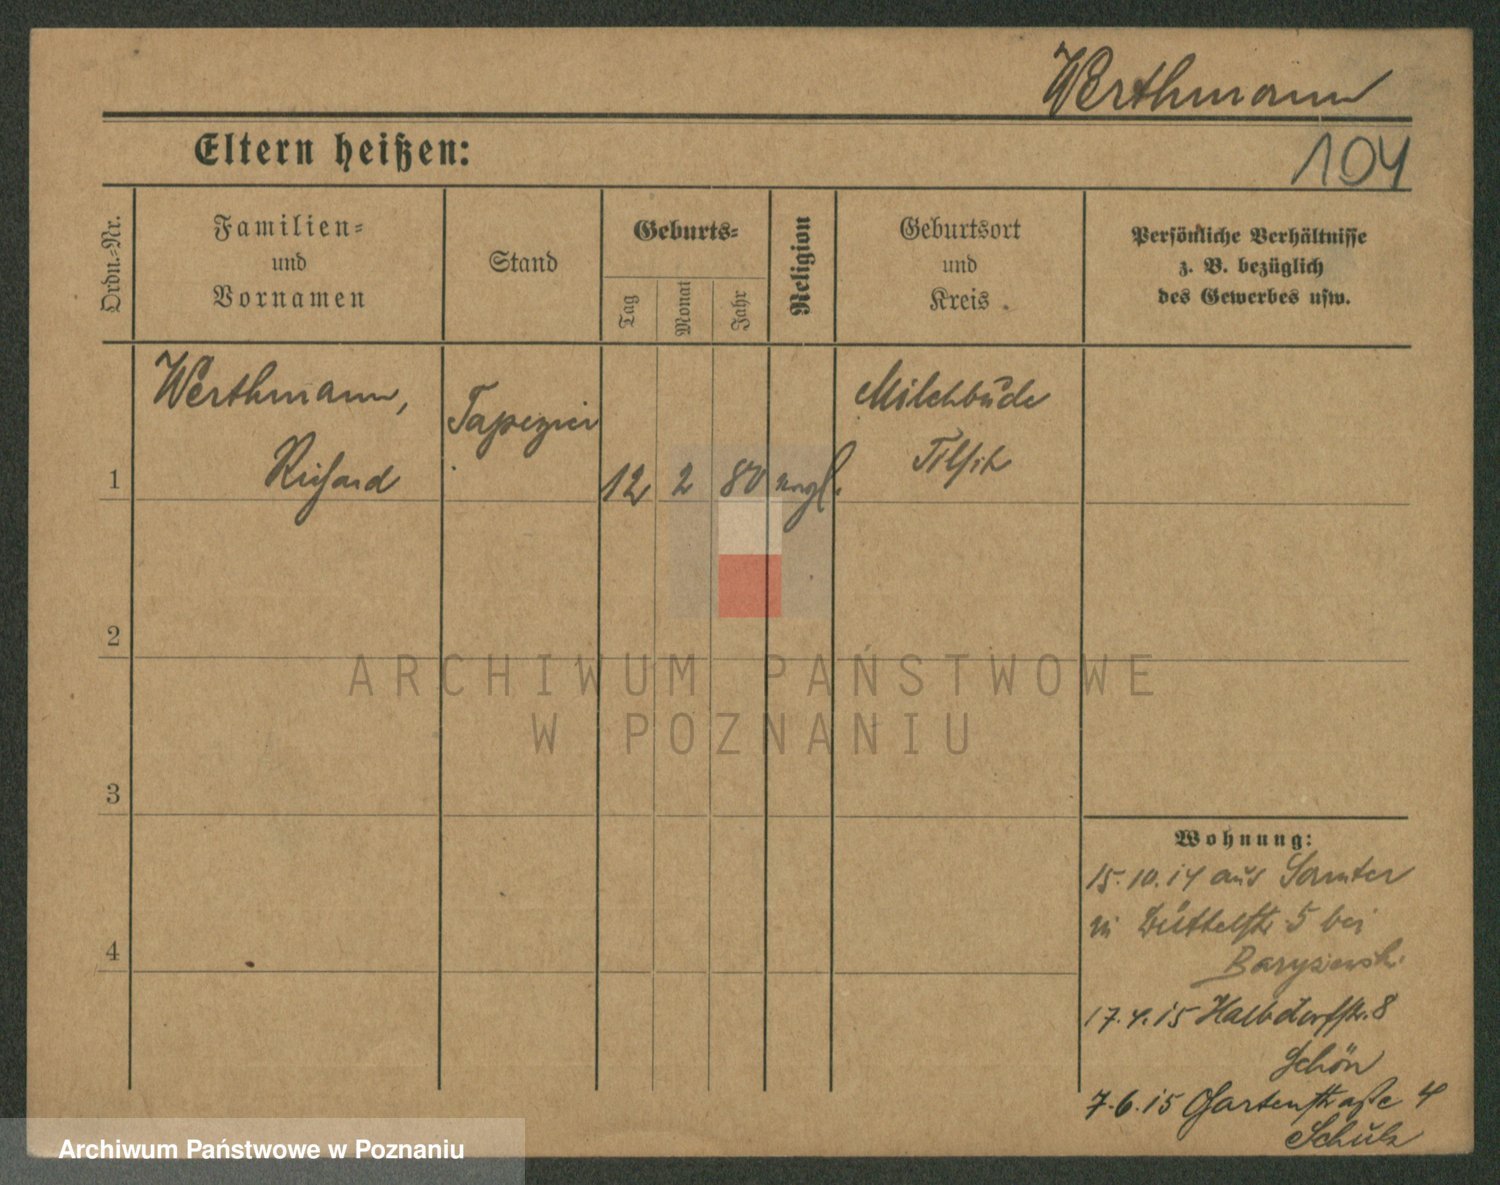 Werthmann
Eltern heißen:
104
Ordn.-Nr.
Familien-
und
Vornamen
Stand
Geburts-
Tag
Monat
Jahr
Religion
Geburtsort
und
Kreis
Persönliche Verhältnisse
z. B. bezüglich
des Gewerbes usw.
1
Werthmann,
Richard
Tapezier
12
2
80
evgl.
Milchbude
Tilsit
2
3
4
ARCHIWUM PAŃSTWOWE
W POZNANIU
Wohnung:
15.10.14 aus Samter
in Büttelstr 5 bei
17.4.15 Halbdorfstr. 8
Schön
7.6.15 Gartenstraße 4
Schulz
Archiwum Państwowe w Poznaniu